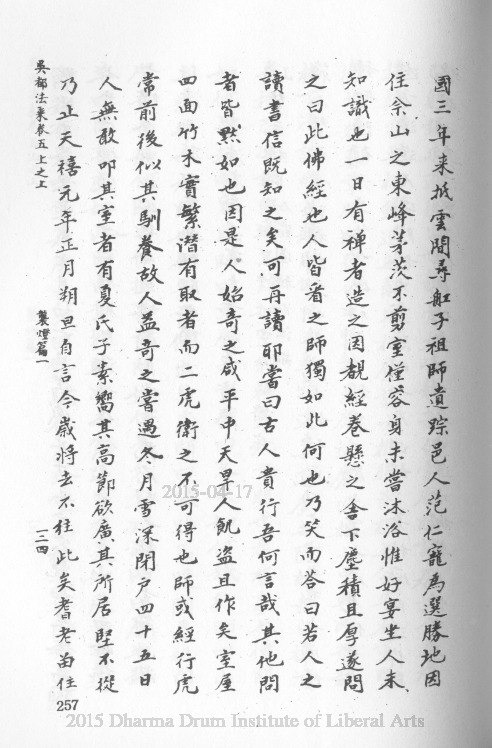 國三年来抵雲間尋舡子祖師遺踪邑人范仁寵為選勝地因
住佘山之東峰茅茨不剪室僅容身未嘗沐浴惟好宴坐人未
知識也一日有禅者造之因覩經卷懸之舍下塵積且厚遂問
之曰此佛經也人皆看之師獨如此何也乃笑而荅曰若人之
讀書信既知之矣何再讀耶嘗曰古人貴行吾何言哉其他問
者皆黙如也因是人始竒之咸平中天旱人飢盗且作矣室屋
四面竹木實繁潜有取者而二虎衛之不可得也師或經行虎
常前後似其馴養故人益竒之嘗遇冬月雪深閉户四十五日
人無敢叩其室者有夏氏子素嚮其高節欲廣其所居堅不從
乃止天禧元年正月朔旦自言今嵗將去不往此矣耆老畄住
吳都法乘卷五上之上
襲燈篇一
一二四
257
2015-04-17
2015 Dharma Drum Institute of Liberal Arts